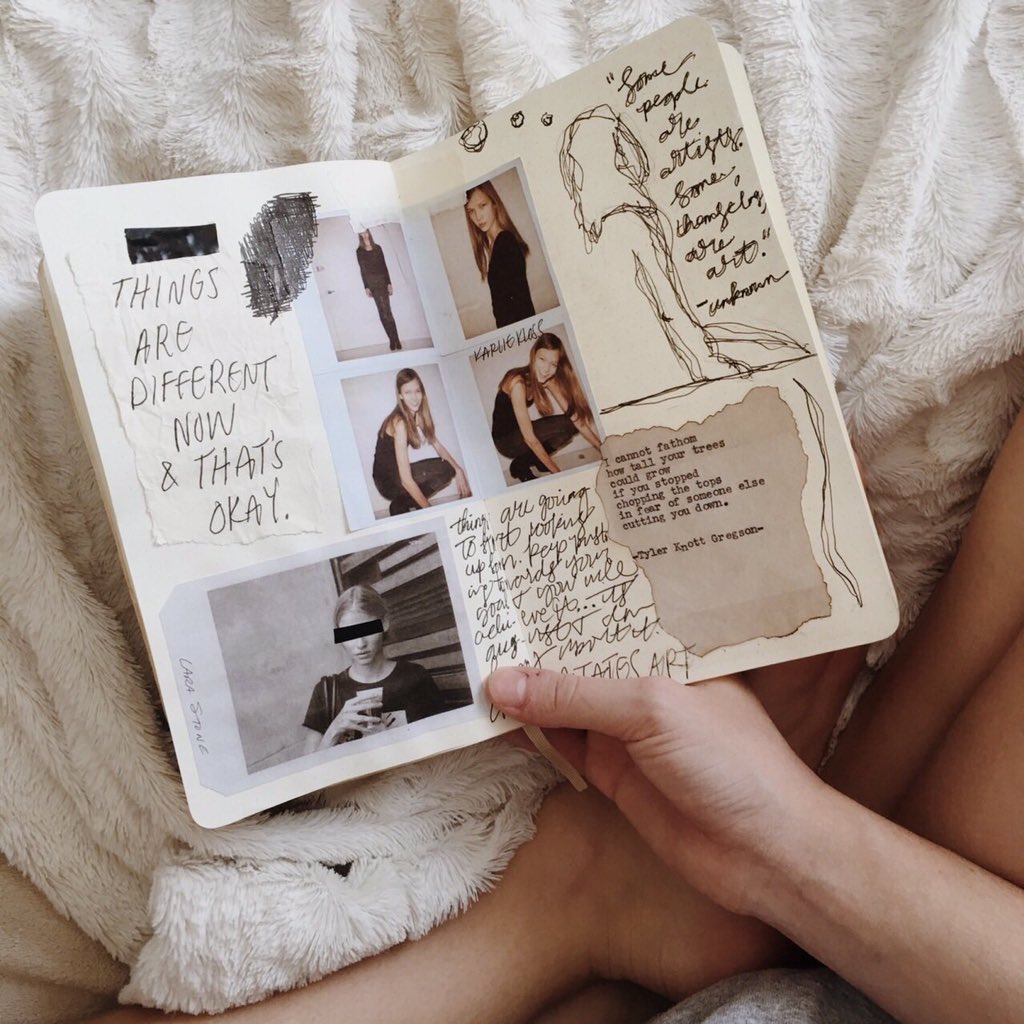 THINGS
ARE
DIFFERENT
NOW
& THAT'S
OKAY.
LARA STONE
KARLIE KLOSS
"Some
people
are
artists.
Some,
themselves,
are
art."
-unknown
I cannot fathom
how tall your trees
could grow
if you stopped
chopping the tops
in fear of someone else
cutting you down.
-Tyler Knott Gregson-
things are going
to start looking
up hun. keep push
ing towards your
goal & you will
achieve it... it's
just
about it.
ART